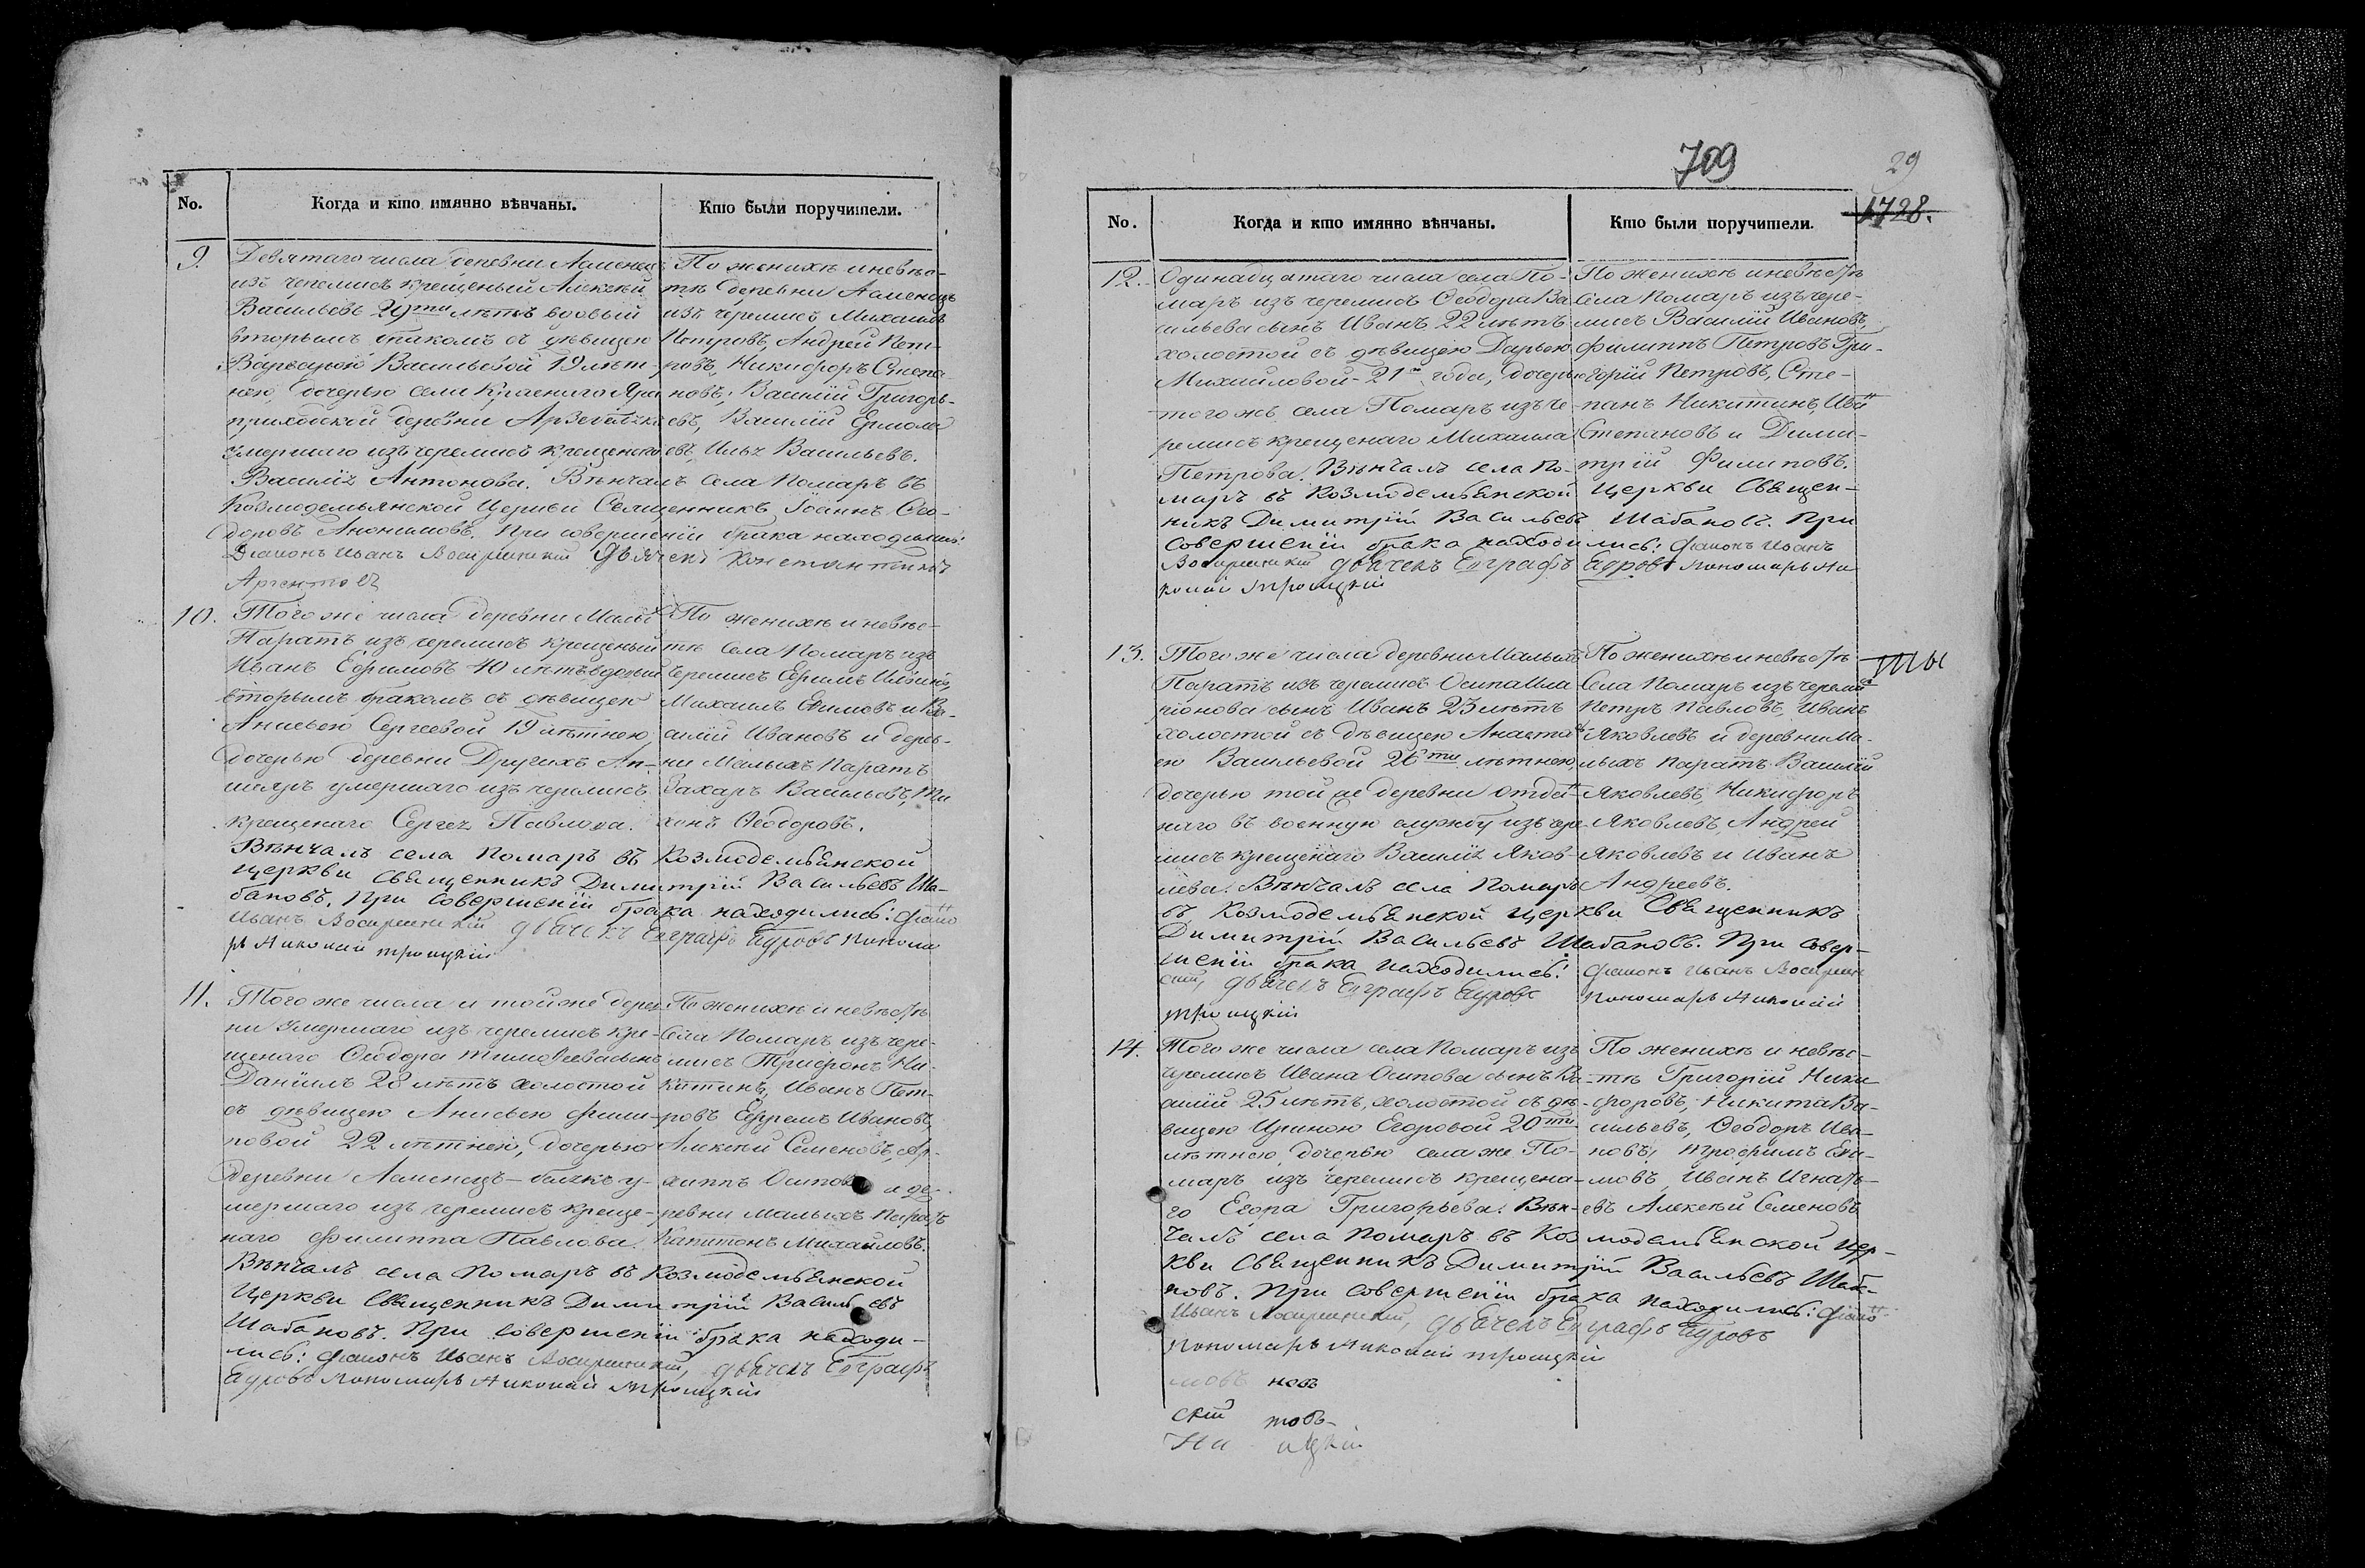 No.
Когда и кто имянно вѣнчаны.
Кто были поручители.
9.
Девятаго числа деревни Ааменецъ
изъ черемисъ крещеный Алексѣй
Васильевъ 29ти лѣтъ вдовый
вторымъ бракомъ съ дѣвицею
Варварою Васильевой 19 лѣт-
нею, дочерью села Краснаго Яра
приходской деревни
умершаго изъ черемисъ крещенаго
Василія Антонова. Вѣнчалъ села Помаръ въ
Козмодемьянской Церкви Священникъ Іоаннъ Ѳео-
доровъ При совершеніи брака находились:
Діаконъ Иванъ дьячекъ Константинъ
Аргентовъ
По женихѣ и невѣс-
тѣ деревни Ааменецъ
изъ черемисъ Михаилъ
Петровъ, Андрей Пет-
ровъ, Никифоръ Степа-
новъ, Василій Григорь-
евъ, Василій Ермола-
евъ, Илья Васильевъ.
10.
Того же числа деревни Малыхъ
Паратъ изъ черемисъ крещеный
Иванъ Ефимовъ 40 лѣтъ, вдовый
вторымъ бракомъ съ дѣвицею
Анисьею Сергеевой 19 лѣтнею
дочерью деревни Другихъ Ап-
шаръ умершаго изъ черемисъ
крещенаго Сергея Павлова.
Вѣнчалъ села Помаръ въ Козмодемьянской
церкви священникъ Димитрій Васильевъ Ша-
бановъ. При совершеніи брака находились: Діаконъ
Иванъ дьячекъ Евграфъ Бдровъ понома
рь Николай Троицкій
По женихѣ и невѣс-
тѣ села Помаръ изъ
черемисъ Ефимъ Ильинъ,
Михаилъ Ефимовъ и Ва-
силій Ивановъ и дерев-
ни Малыхъ Паратъ
Захаръ Васильевъ, Ти
хонъ Ѳеодоровъ.
11.
Того же числа и той же дерев
ни умершаго изъ черемисъ кре-
щенаго Ѳеодора Тимоѳеева сынъ
Даніилъ 28 лѣтъ холостой
съ дѣвицею Анисьею Фили-
повой 22 лѣтнею, дочерью
деревни Ааменецъ- у-
мершаго изъ черемисъ креще-
наго Филиппа Павлова.
Вѣнчалъ села Помаръ въ Козмодемьянской
Церкви священникъ Димитрій Васильевъ
Шабановъ. При совершеніи брака находи-
лись: Діаконъ Иванъ дьячекъ Евграфъ
пономарь Николай Троицкій
По женихѣ и невѣстѣ
Села Помаръ изъ чере-
мисъ Трифонъ Ни-
китинъ, Иванъ Пет-
ровъ Ефремъ Ивановъ,
Алексѣй Семеновъ,
Осиповъ и де-
ревни Малыхъ Паратъ
Капитонъ Михайловъ.
709
29
1728.
No.
Когда и кто имянно вѣнчаны.
Кто были поручители.
12.
Одинадцатаго числа села По-
маръ изъ черемисъ Ѳеодора Ва
сильева сынъ Иванъ 22 лѣтъ
холостой съ дѣвицею Дарьею
Михайловой 21 года, дочерью
того жъ села Помаръ изъ че-
ремисъ крещенаго Михаила
Петрова. Вѣнчалъ села По-
маръ въ Козмодемьянской Церкви Священ-
никъ Димитрій Васильевъ Шабановъ. При
совершеніи брака находились: Діаконъ Иванъ
дьячекъ Евграфъ пономарь Ни
колай Троицкій
По женихѣ и невѣстѣ
Села Помаръ изъ чере-
мисъ Василій Ивановъ,
Филиппъ Петровъ Гри-
горій Петровъ, Сте-
панъ Никитинъ, Иванъ
Степановъ и Дими-
трій Филиповъ.
13.
Того же числа деревни Малыхъ
Паратъ изъ черемисъ Осипа Ила
ріонова сынъ Иванъ 23 лѣтъ
холостой съ дѣвицею Анаста
ею Васильевой 26ти лѣтнею,
дочерью той же деревни отдан
наго въ военную службу изъ чере
мисъ крещенаго Василія Яков-
лева. Вѣнчалъ села Помаръ
въ Козмодемьянской церкви Священникъ
Димитрій Васильевъ Шабановъ. При совер-
шеніи брака находились: Діаконъ Иванъ
дьячекъ Евграфъ пономарь Николай
Троицкій
По женихѣ и невѣстѣ
Села Помаръ изъ черемисъ
Петръ Павловъ, Иванъ
Яковлевъ и деревни Ма-
лыхъ Паратъ Василій
Яковлевъ, Никифоръ
Яковлевъ, Андрей
Яковлевъ и Иванъ
Андреевъ.
14.
Того же числа села Помаръ изъ
черемисъ Ивана Осипова сынъ Ва-
силій 25 лѣтъ, холостой съ дѣ-
вицею Ириною Егоровой 20ти
лѣтнею, дочерью села же По-
маръ изъ черемисъ крещена-
го Егора Григорьева. Вѣн-
чалъ села Помаръ въ Козмодемьянской цер-
кви священникъ Димитрій Васильевъ Шаба-
новъ. При совершеніи брака находились: Діаконъ
Иванъ дьячекъ Евграфъ
пономарь Николай Троицкій
По женихѣ и невѣс-
тѣ Григорій Ники
форовъ, Никита Ва-
сильевъ, Ѳеодоръ Ива-
новъ, Трофимъ Ефи-
мовъ, Иванъ Игнать-
евъ Алексѣй Семеновъ
мовъ новъ
скій товъ
Ни ицкій